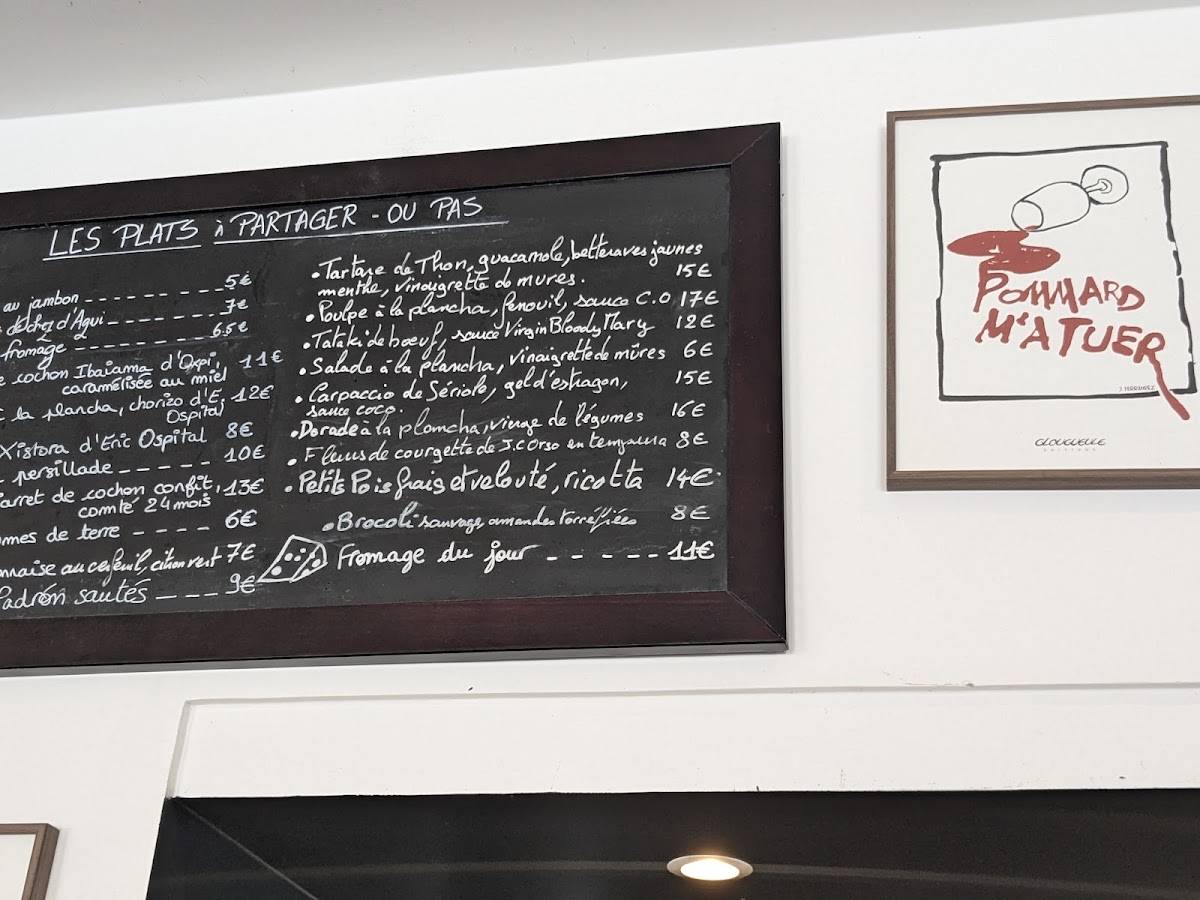 LES PLATS à PARTAGER - OU PAS
au jambon - - - - - - - - - 5€
de chez d'Agui - - - - - - - 7€
fromage - - - - - - - - - 6.5€
cochon Ibaiama d'Ospi, 11€
caramélisée au miel
la plancha, chorizo d'E. 12€
Ospital
Xistora d'Eric Ospital 8€
persillade - - - - - 10€
jarret de cochon confit, 13€
comté 24 mois
de terre - - - - 6€
au cerfeuil, citron vert 7€
Padrón sautés - - - 9€
• Tartare de Thon, guacamole, betteraves jaunes
menthe, vinaigrette de mures. 15€
• Poulpe à la plancha, fenouil, sauce C.O 17€
• Tataki de bœuf, sauce Virgin Bloody Mary 12€
• Salade à la plancha, vinaigrette de mûres 6€
• Carpaccio de Sériole, gel d'estragon, 15€
sauce coco.
• Dorade à la plancha, vierge de légumes 16€
• Fleurs de courgette de J.C Orso en tempura 8€
• Petits Pois frais et velouté, ricotta 14€
• Brocoli sauvage, amandes torréfiées 8€
Fromage du jour - - - - - 11€
POMMARD
M'A TUER
GLOUGUEULE
EDITIONS